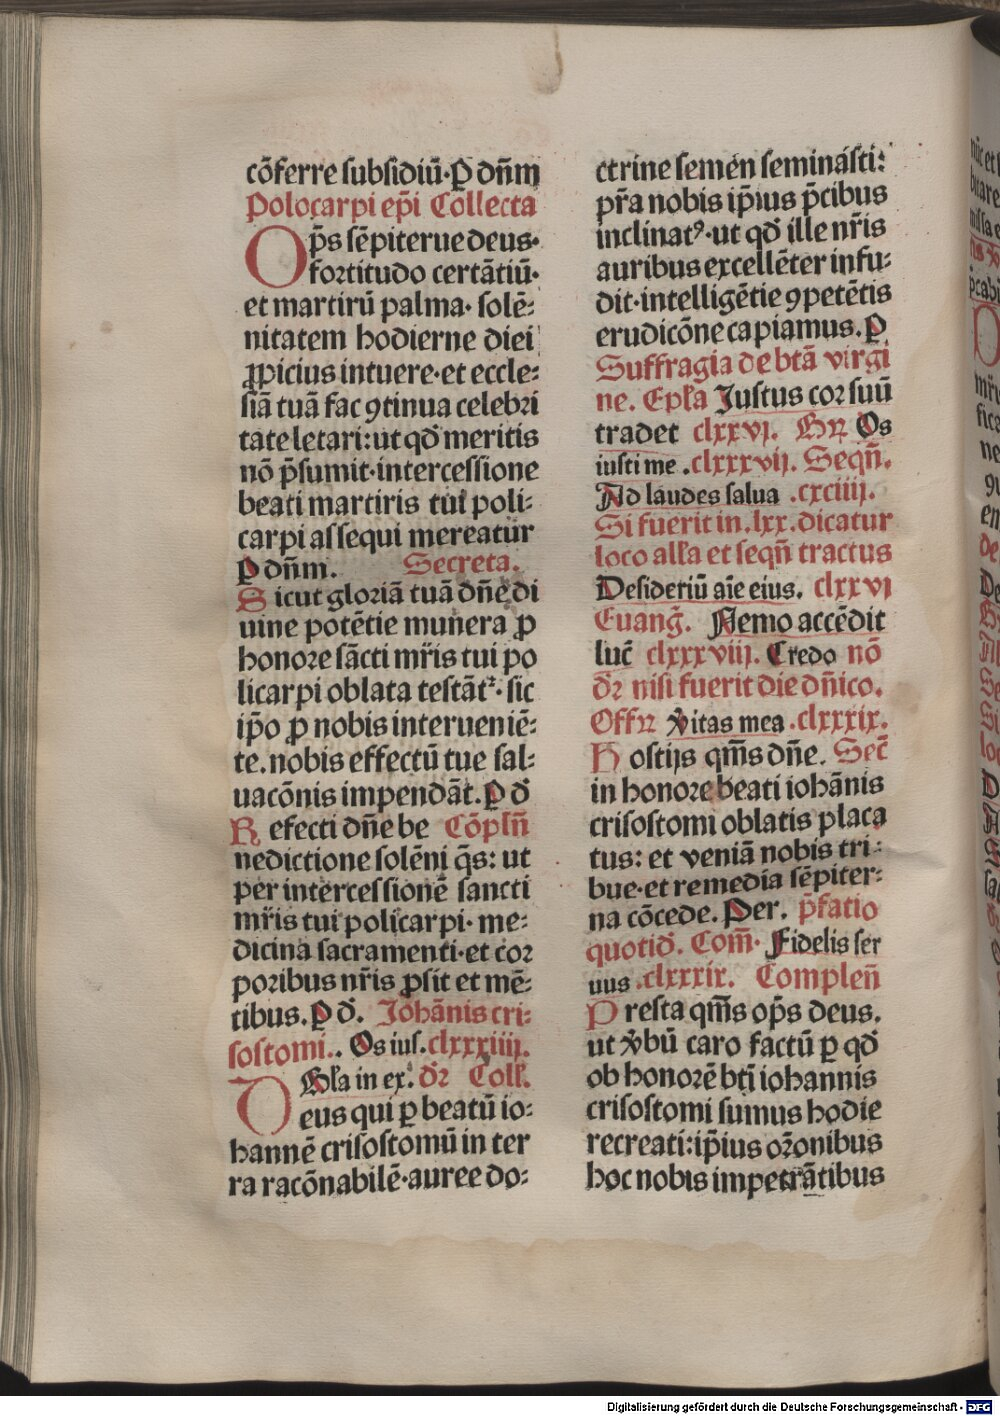 cōferre subsidiū·ꝑ dn̄m
Polocarpi ep̄i Collecta
Op̄s sēpiterue deus·
fortitudo certātiū·
et martirū palma· solē⸗
nitatem hodierne diei
ꝓpicius intuere·et eccle⸗
siā tuā fac ꝯtinua celebri
tate letari:ut qd̄ meritis
nō p̄sumit·intercessione
beati martiris tui poli⸗
carpi assequi mereatur
ꝑ dn̄m. Secreta.
Sicut gloriā tuā dn̄e di
uine potētie munera ꝓ
honore sācti mr̄is tui po
licarpi oblata testāt᷑· sic
ip̄o ꝓ nobis interueniē⸗
te.nobis effectū tue sal⸗
uacōnis impendāt.ꝑ d̄
Refecti dn̄e be Cōpln̄
nedictione solēni q̄s: ut
per intercessionē sancti
mr̄is tui policarpi· me⸗
dicina sacramenti·et cor
poribus nr̄is ꝓsit et mē⸗
tibus.ꝑ d̄. Johānis cri⸗
sostomi.. Os ius.clxxxiiij.
Al̄a in ex. dr̄ Coll̄.
Deus qui ꝑ beatū io⸗
hannē crisostomū in ter
ra racōnabilē·auree do⸗
ctrine semen seminasti:
pr̄a nobis ip̄ius p̄cibus
inclinatꝰ·ut qd̄ ille nr̄is
auribus excellēter infu⸗
dit·intelligētie ꝯpetētis
erudicōne capiamus.ꝑ
Suffragia de btā virgi
ne. Epl̄a Justus cor suū
tradet clxxvj. Gr̄ Os
iusti me .clxxxvij. Seqn̄.
Ad laudes salua .cxciiij.
Si fuerit in .lxx.dicatur
loco all̄a et seqn̄ tractus
Desideriū aīe eius. clxxvj
Euanḡ. Nemo accēdit
luc̄ clxxxviij. Credo nō
dr̄ nisi fuerit die dn̄ico.
Offr̄ v̄itas mea .clxxxix.
Hostijs qm̄s dn̄e. Sec̄
in honore beati iohānis
crisostomi oblatis placa
tus: et veniā nobis tri⸗
bue·et remedia sēpiter⸗
na cōcede. Per. p̄fatio
quotid̄. Com̄· Fidelis ser
uus .clxxxix. Complen̄
Presta qm̄s op̄s deus.
ut v̄bū caro factū ꝑ qd̄
ob honorē bt̄i iohannis
crisostomi sumus hodie
recreati:ip̄ius or̄onibus
hoc nobis impetrātibus
Digitalisierung gefördert durch die Deutsche Forschungsgemeinschaft - DFG